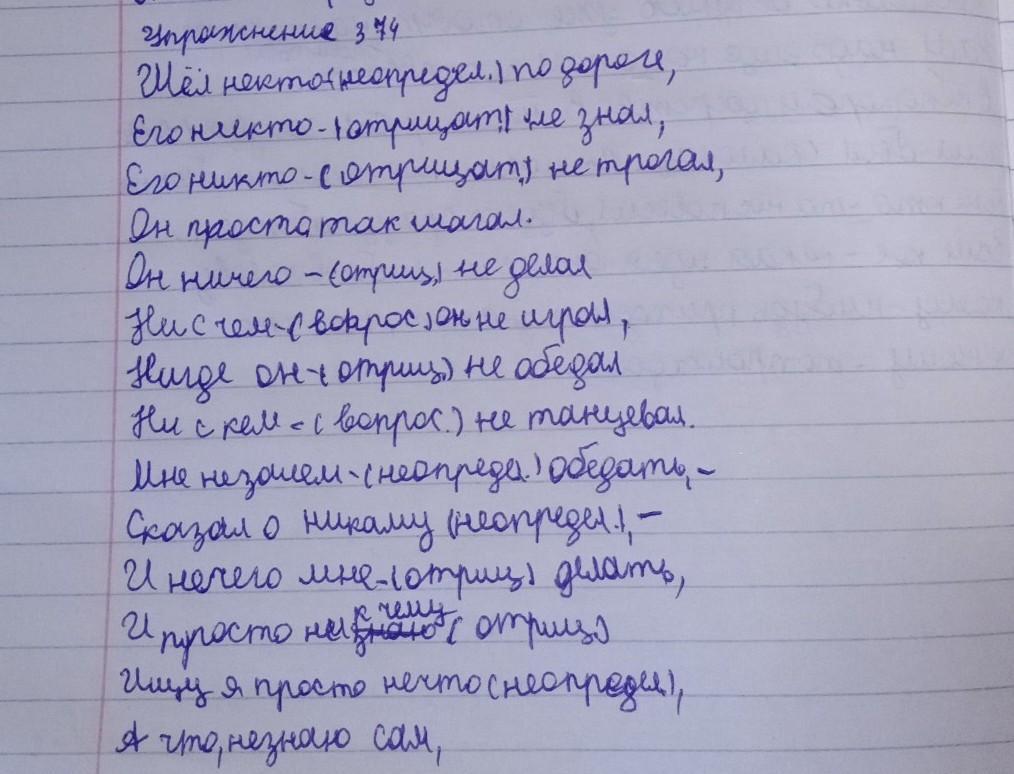 Упражнение 374
Шёл некто(неопредел.) по дороге,
Его никто-(отрицат.) не знал,
Его никто-(отрицат.) не трогал,
Он проста так шагал.
Он ничего-(отриц) не делал
Ни с чем-(вопрос) он не играл,
Нигде он-(отриц.) не обедал
Ни с кем-(вопрос.) не танцевал.
Мне незачем-(неопреде.) обедать,-
Сказал о никаму (неопредел.),-
И нечего мне-(отриц) делать,
И просто ни к чему (отриц)
Ищу я просто нечто(неопредел),
А что, незнаю сам,